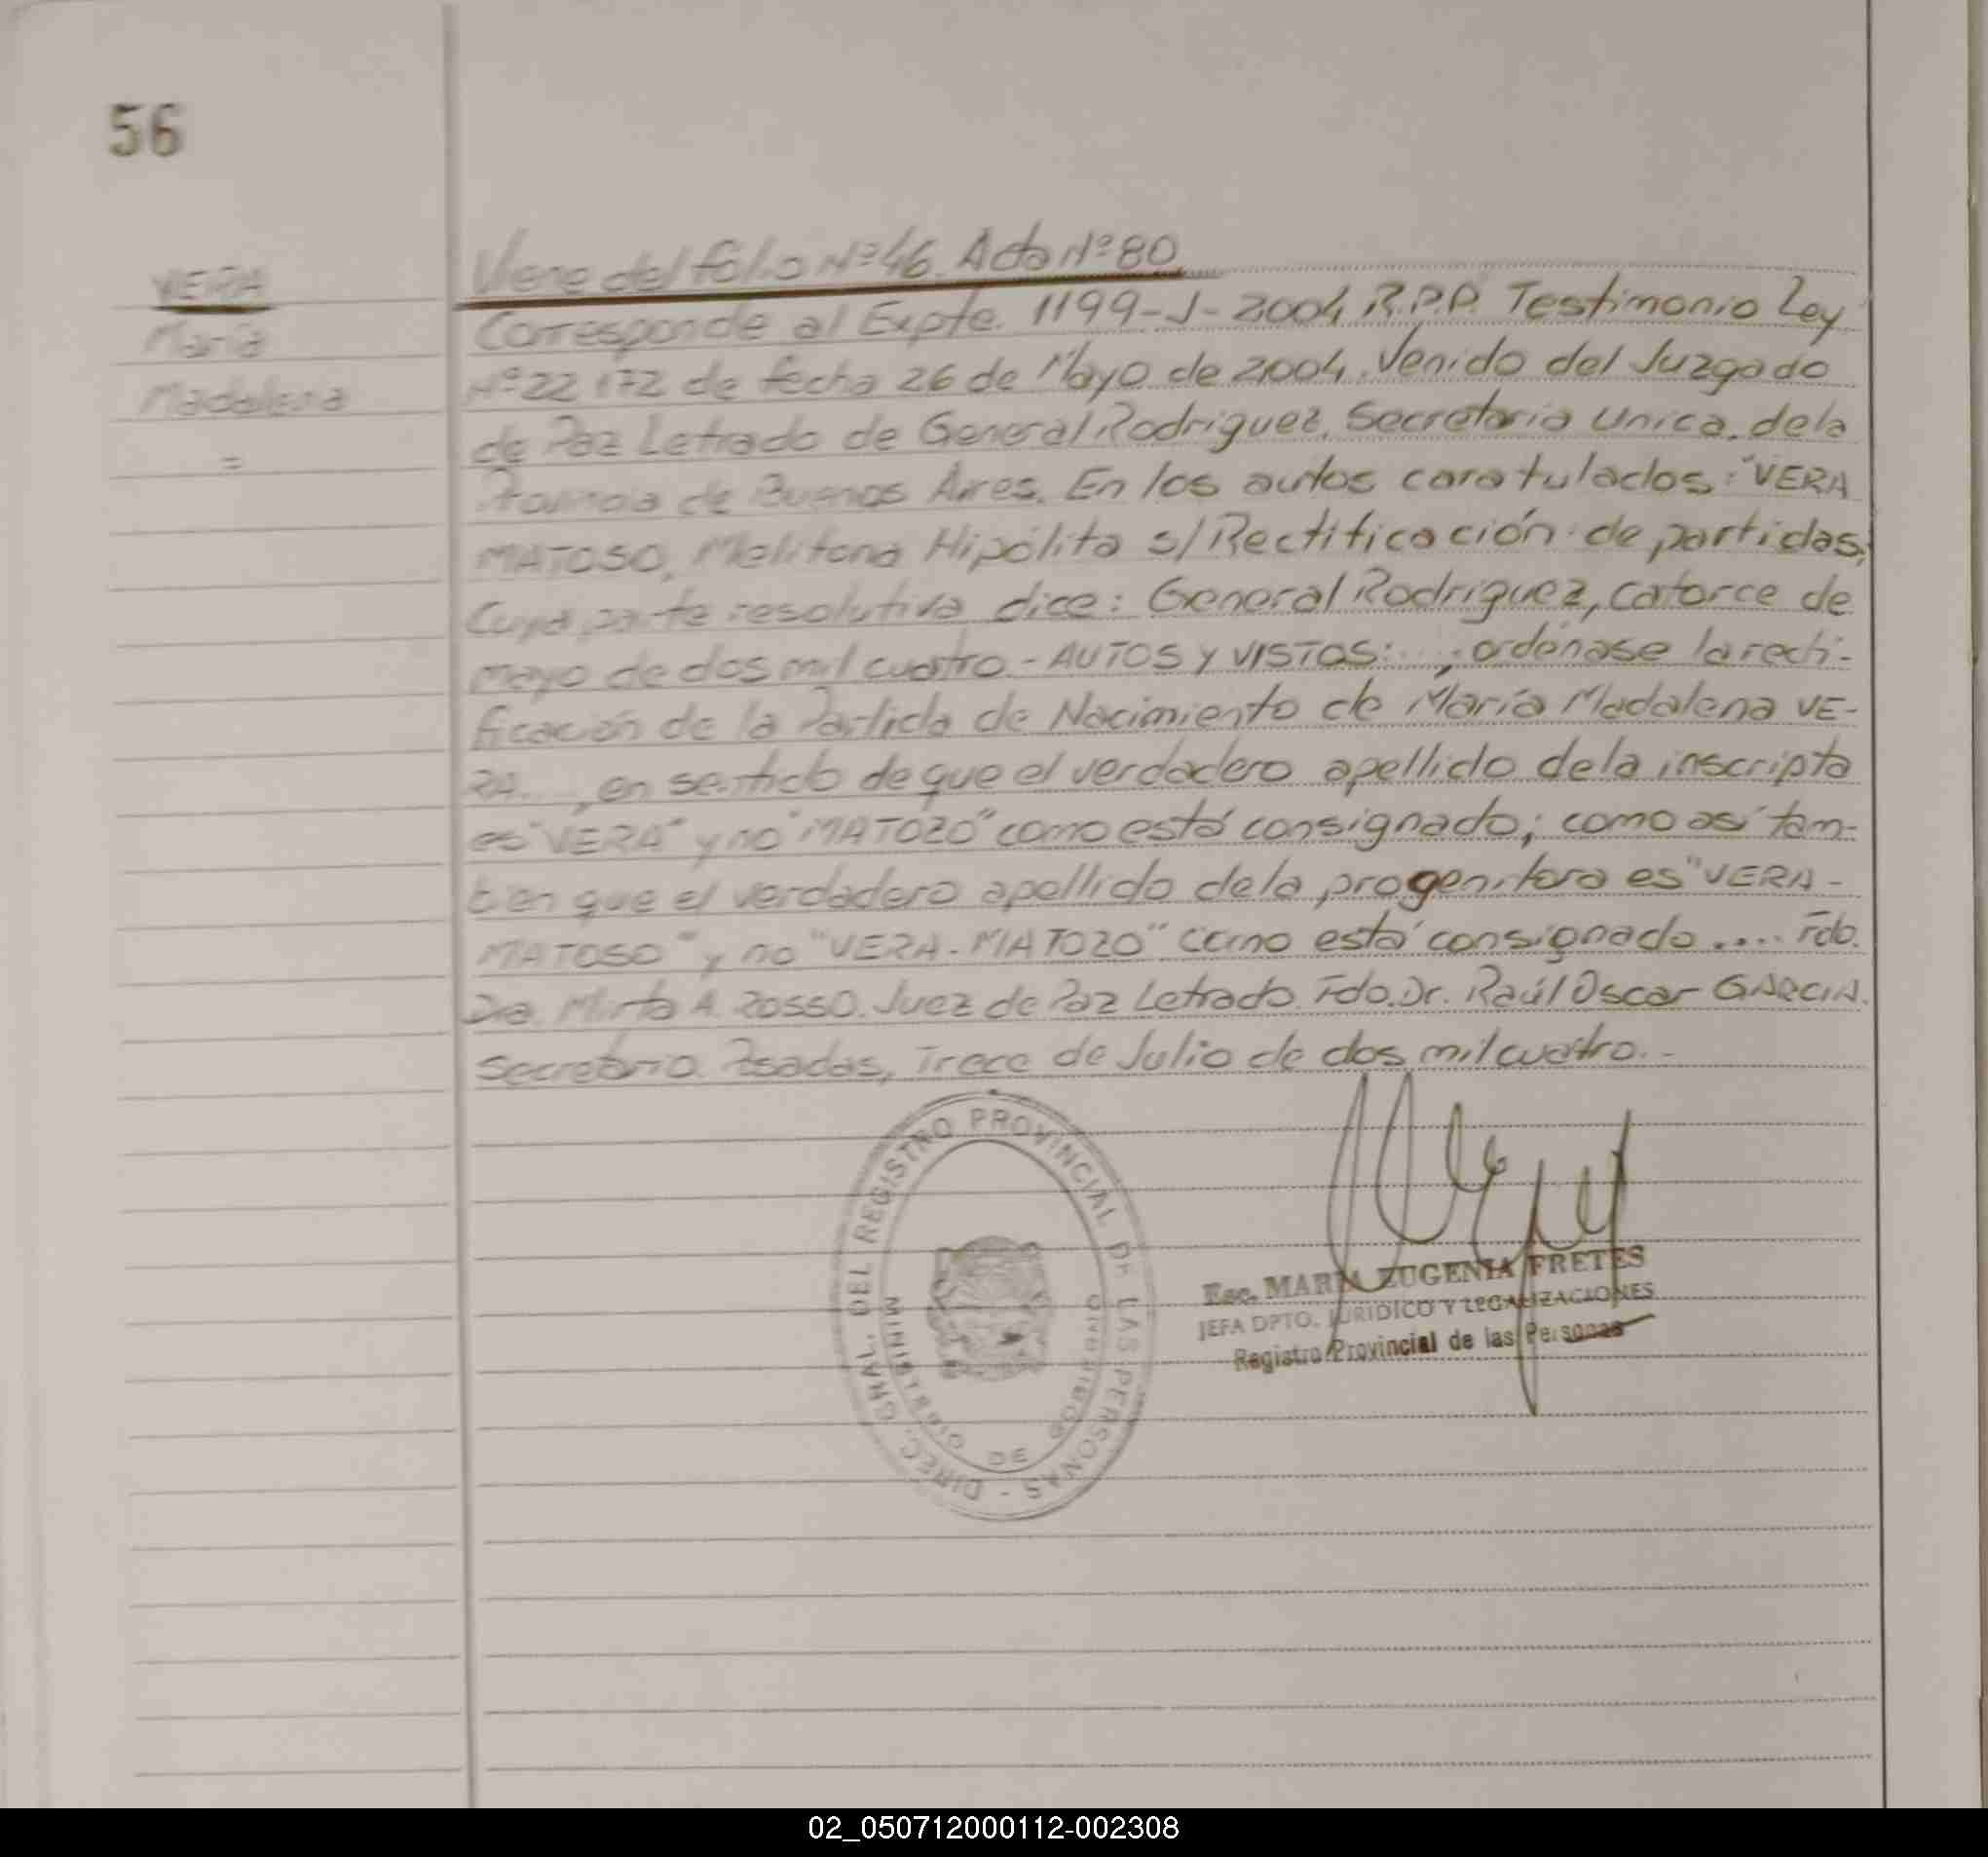 56
VERA
María
Madalena
=
Viene del folio Nº 46. Acta Nº 80
Corresponde al Expte. 1199-J-2004 R.P.P. Testimonio Ley
Nº 22172 de fecha 26 de Mayo de 2004. Venido del Juzgado
de Paz Letrado de General Rodriguez, Secretaria Unica, de la
Provincia de Buenos Aires. En los autos caratulados: "VERA
MATOSO, Melitona Hipólita s/ Rectificación de partidas,
Cuya parte resolutiva dice: General Rodriguez, catorce de
mayo de dos mil cuatro.- AUTOS y VISTOS: ..., ordénase la recti-
ficación de la Partida de Nacimiento de María Madalena VE-
RA. ..., en sentido de que el verdadero apellido de la inscripta
es "VERA" y no "MATOZO" como está consignado; como así tam-
bien que el verdadero apellido de la progenitora es "VERA-
MATOSO" y no "VERA-MATOZO" como está consignado .... Fdo.
Dra. Mirta A. ROSSO. Juez de Paz Letrado. Fdo. Dr. Raúl Oscar GARCIA.
Secretario. Posadas, Trece de Julio de dos mil cuatro.-
DIREC. GRAL. DEL REGISTRO PROVINCIAL DE LAS PERSONAS -
MINISTERIO DE GOBIERNO
Esc. MARIA EUGENIA FRETES
JEFA DPTO. JURIDICO Y LEGALIZACIONES
Registro Provincial de las Personas
02_050712000112-002308